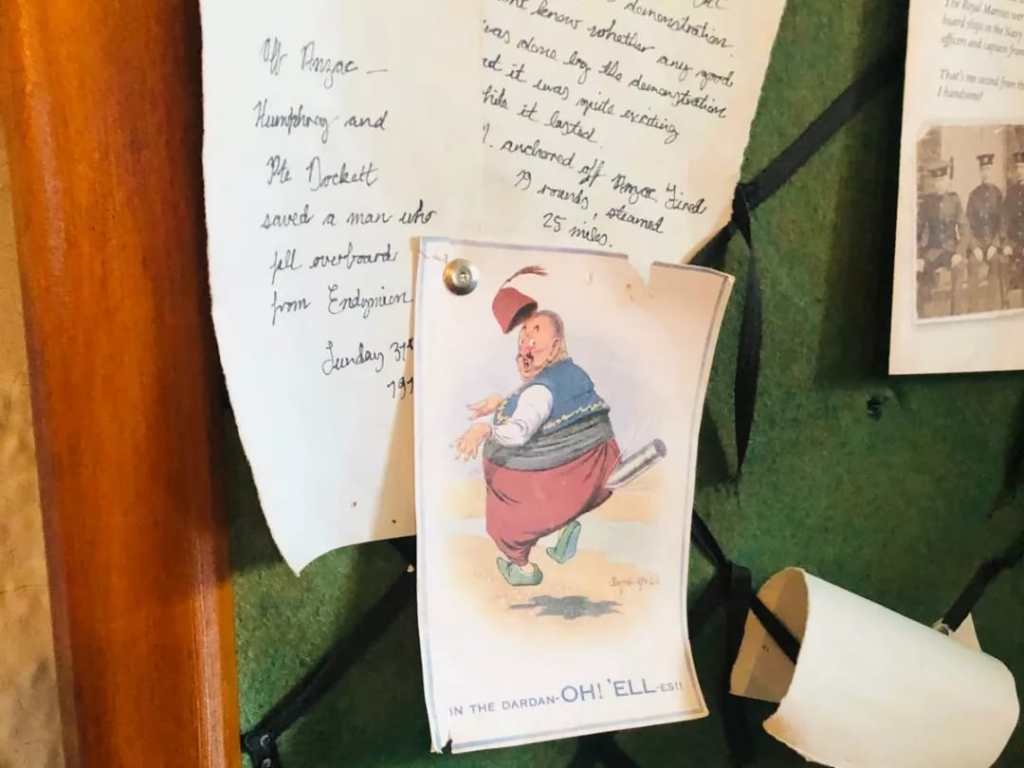 Off Anzac —
Humphrey and
Pte Dockett
saved a man who
fell overboard
from Endymion
Sunday 31st
191
demonstration.
know whether any good
was done by the demonstration
it was quite exciting
it lasted.
anchored off Anzac. Fired
79 rounds, steamed
25 miles.
IN THE DARDAN-OH! 'ELL-ES!!
The Royal Marines
board ships in the Navy
officers and captain from
That's me second from the
I handsome!